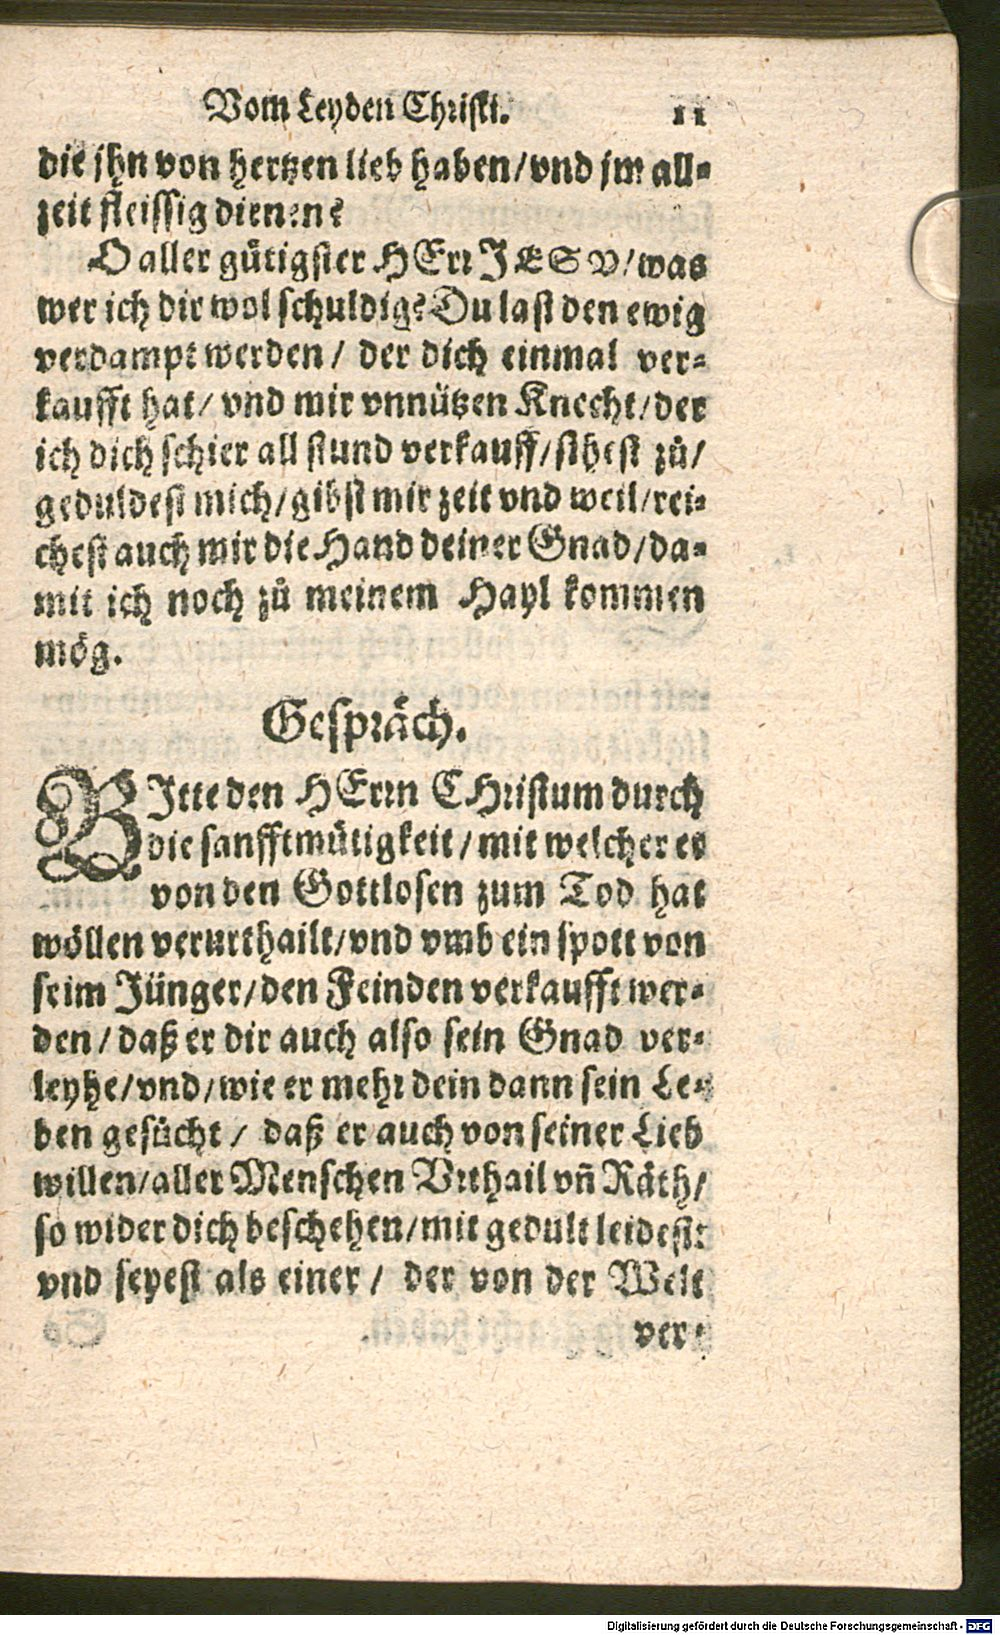 Vom Leyden Christi. 11
die jhn von hertzen lieb haben/ vnd jm all-
zeit fleissig dienen?
O aller gütigster HErr JESV/ was
wer ich dir wol schuldig? Du last den ewig
verdampt werden/ der dich einmal ver-
kaufft hat/ vnd mir vnnützen Knecht/ der
ich dich schier all stund verkauff/ sihest zů/
geduldest mich/ gibst mir zeit vnd weil/ rei-
chest auch mir die Hand deiner Gnad/ da-
mit ich noch zů meinem Hayl kommen
mög.
Gespräch.
BItte den HErrn CHristum durch
die sanfftmütigkeit/ mit welcher er
von den Gottlosen zum Tod hat
wöllen verurthailt/ vnd vmb ein spott von
seim Jünger/ den Feinden verkaufft wer-
den/ daß er dir auch also sein Gnad ver-
leyhe/ vnd/ wie er mehr dein dann sein Le-
ben gesücht/ daß er auch von seiner Lieb
willen/ aller Menschen Vrthail vñ Räth/
so wider dich beschehen/ mit gedult leidest:
vnd seyest als einer/ der von der Welt
ver-
Digitalisierung gefördert durch die Deutsche Forschungsgemeinschaft - DFG